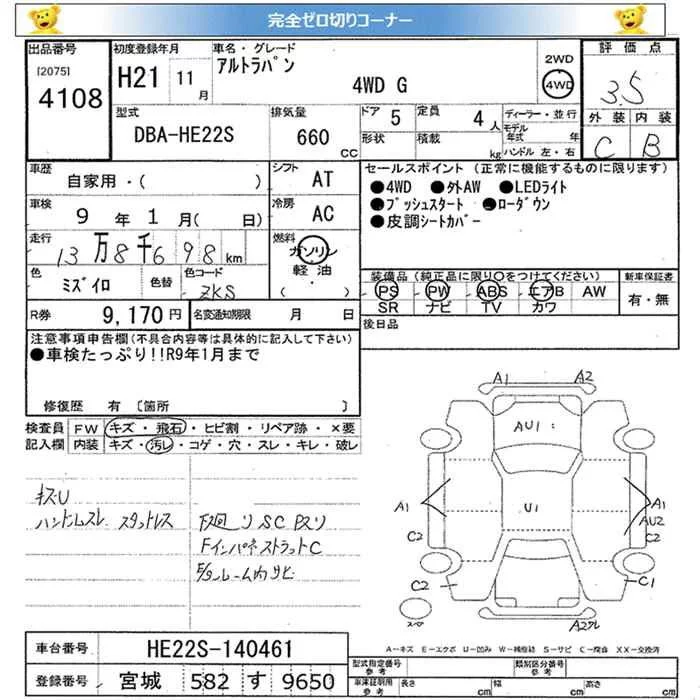 完全ゼロ切りコーナー
出品番号 初度登録年月 車名・グレード 評価点
[2075] 4108 H21 11月 アルトラパン 4WD G 2WD 4WD 3.5
型式 排気量 ドア 定員 ディーラー・並行 外装 内装
DBA-HE22S 660 CC 5 4人 モデル年式 年 C B
形状 積載 kg ハンドル 左・右
車歴 シフト セールスポイント (正常に機能するものに限ります)
自家用・( ) AT ●4WD ●外AW ●LEDライト
車検 冷房 ●プッシュスタート ●ローダウン
9年1月( 日) AC ●皮調シートカバー
走行 燃料
13万8千698km ガソリン
軽油
( )
色 色替 色コード 装備品 (純正品に限り○をつけてください) 新車保証書
ミズイロ ZKS PS PW ABS エアB AW 有・無
SR ナビ TV カワ
R券 9,170円 名変通知期限 月 日 後日品
注意事項申告欄(不具合内容等は具体的に記入して下さい)
●車検たっぷり!!R9年1月まで
修復歴 有 [箇所 ]
検査員 FW キズ・飛石・ヒビ割・リペア跡・×要
記入欄 内装 キズ・汚レ・コゲ・穴・スレ・キレ・破レ
キズU
ハンドルスレ スタッドレス
下廻りSC Pスリ
FインパネストラットC
A1 A2
AU1
A1 U1 A1
AU2
C2 C2
C2 C1
スペア A2スレ
A-キズ E-エクボ U-凹み W-補修跡 S-サビ C-腐食 XX-交換済
車台番号 HE22S-140461
登録番号 宮城 582 す 9650
型式指定番号 参考 類別区分番号 参考
車体証明用 参考 長さ cm 幅 cm 高さ cm